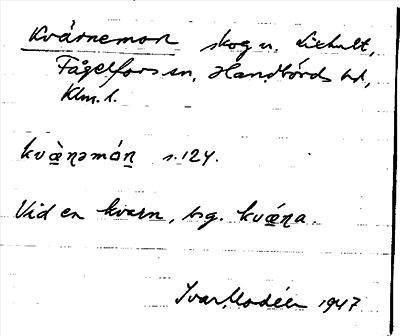 Kvärnemon skog n. Liehult,
Fågelfors sn, Handbörds hd,
Klm. l.
kvæ̀ꞃəmón s. 124.
Vid en kvarn, bsg. kvæ̀ꞃa.
Ivar Modéer 1947